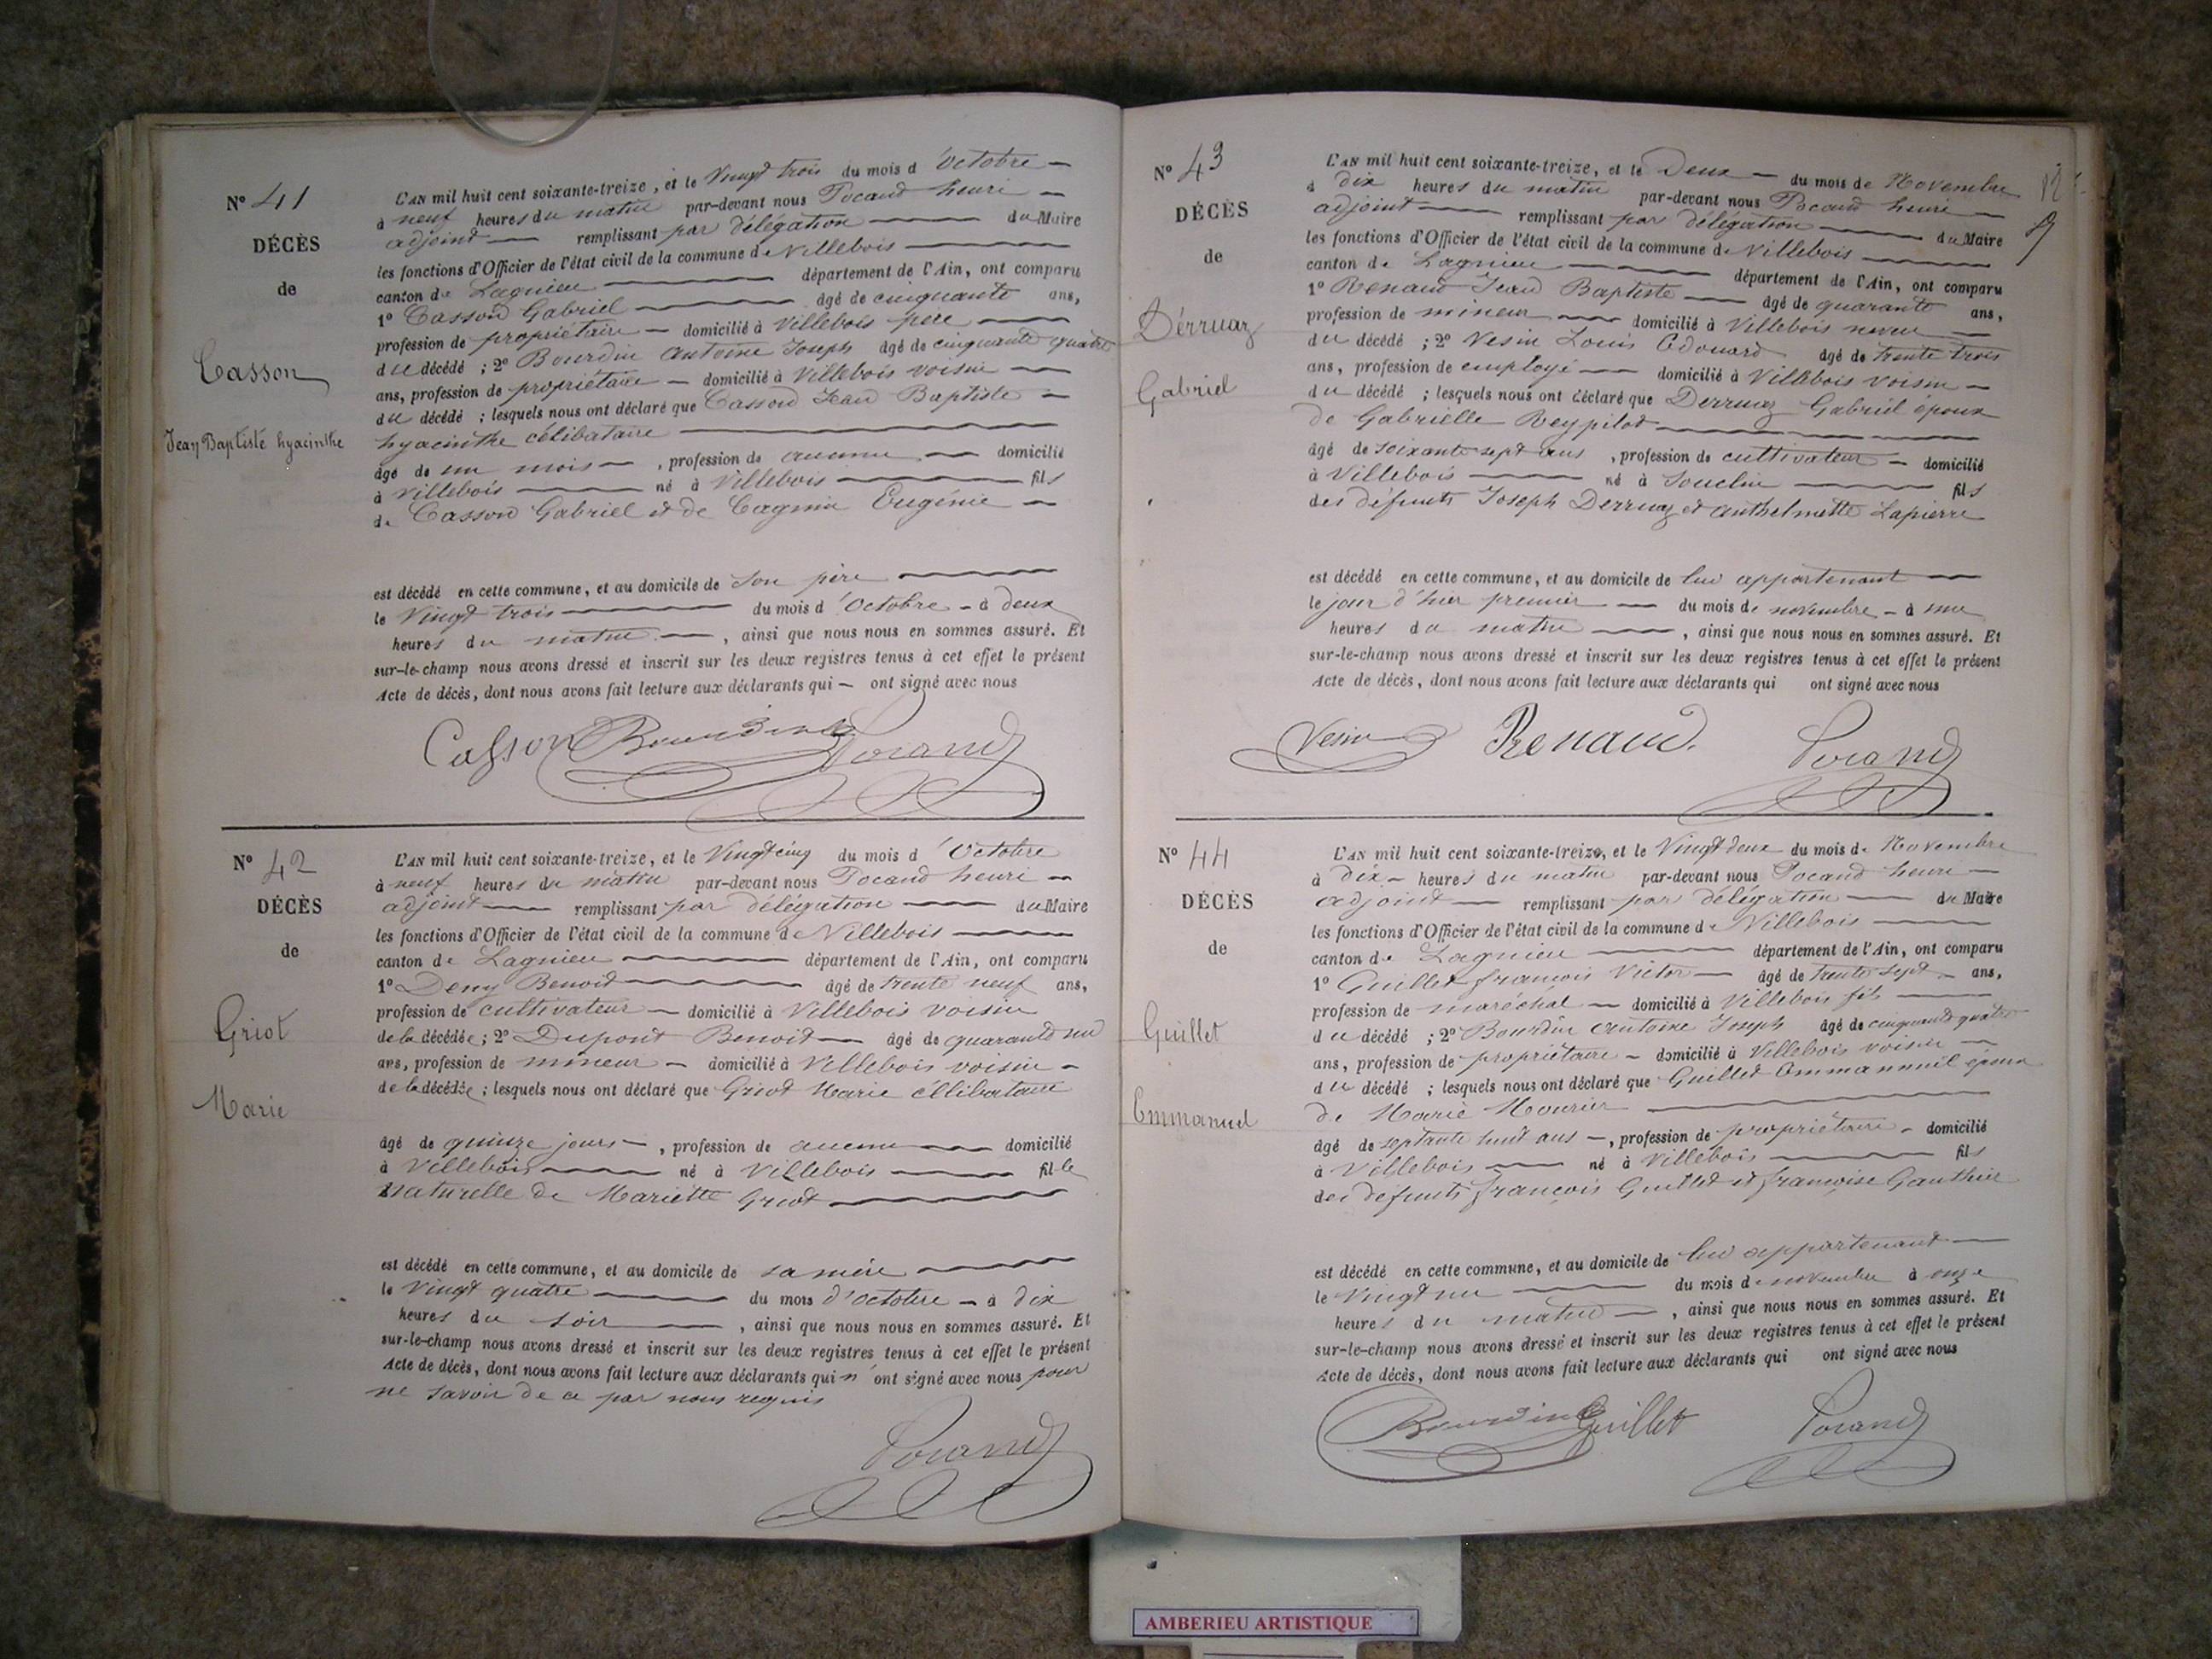 N° 41
DÉCÈS
de
Casson
Jean Baptiste hyacinthe
L'AN mil huit cent soixante-treize, et le Vingt trois du mois d'Octobre
à neuf heures du matin par-devant nous Pocand henri
adjoint remplissant par délégation du Maire
les fonctions d'Officier de l'état civil de la commune de Villebois
canton de Lagnieu département de l'Ain, ont comparu
1° Casson Gabriel âgé de cinquante ans,
profession de propriétaire domicilié à Villebois père
du décédé ; 2° Bourdin Antoine Joseph âgé de cinquante quatre
ans, profession de propriétaire domicilié à Villebois voisin
du décédé ; lesquels nous ont déclaré que Casson Jean Baptiste
hyacinthe célibataire
âgé de un mois , profession de aucune domicilié
à Villebois né à Villebois fils
de Casson Gabriel et de Eugénie
est décédé en cette commune, et au domicile de son père
le Vingt trois du mois d'Octobre à deux
heures du matin , ainsi que nous nous en sommes assuré. Et
sur-le-champ nous avons dressé et inscrit sur les deux registres tenus à cet effet le présent
Acte de décès, dont nous avons fait lecture aux déclarants qui ont signé avec nous
Casson Bourdin Pocand
N° 42
DÉCÈS
de
Griot
Marie
L'AN mil huit cent soixante-treize, et le Vingt cinq du mois d'Octobre
à neuf heures du matin par-devant nous Pocand henri
adjoint remplissant par délégation du Maire
les fonctions d'Officier de l'état civil de la commune de Villebois
canton de Lagnieu département de l'Ain, ont comparu
1° Deny Benoit âgé de trente neuf ans,
profession de cultivateur domicilié à Villebois voisin
de la décédée ; 2° Dupont Benoit âgé de quarante un
ans, profession de mineur domicilié à Villebois voisin
de la décédée ; lesquels nous ont déclaré que Griot Marie célibataire
âgé de quinze jours , profession de aucune domicilié
à Villebois né à Villebois fille
naturelle de Mariette Griot
est décédé en cette commune, et au domicile de sa mère
le vingt quatre du mois d'octobre à dix
heures du soir , ainsi que nous nous en sommes assuré. Et
sur-le-champ nous avons dressé et inscrit sur les deux registres tenus à cet effet le présent
Acte de décès, dont nous avons fait lecture aux déclarants qui n'ont signé avec nous pour
ne savoir de ce par nous requis
Pocand
N° 43
DÉCÈS
de
Dérruaz
Gabriel
L'AN mil huit cent soixante-treize, et le Deux du mois de Novembre
à dix heures du matin par-devant nous Pocand henri
adjoint remplissant par délégation du Maire
les fonctions d'Officier de l'état civil de la commune de Villebois
canton de Lagnieu département de l'Ain, ont comparu
1° Renaud Jean Baptiste âgé de quarante ans,
profession de mineur domicilié à Villebois neveu
du décédé ; 2° Vesin Louis Edouard âgé de trente trois
ans, profession de employé domicilié à Villebois voisin
du décédé ; lesquels nous ont déclaré que Derruaz Gabriel époux
de Gabrielle Reypilot
âgé de soixante sept ans , profession de cultivateur domicilié
à Villebois né à Souclin fils
des défunts Joseph Derruaz et Anthelmette Lapierre
est décédé en cette commune, et au domicile de lui appartenant
le jour d'hier premier du mois de novembre à une
heures du matin , ainsi que nous nous en sommes assuré. Et
sur-le-champ nous avons dressé et inscrit sur les deux registres tenus à cet effet le présent
Acte de décès, dont nous avons fait lecture aux déclarants qui ont signé avec nous
Vesin Renaud. Pocand
N° 44
DÉCÈS
de
Guillet
Emmanuel
L'AN mil huit cent soixante-treize, et le Vingt deux du mois de Novembre
à dix heures du matin par-devant nous Pocand henri
adjoint remplissant par délégation du Maire
les fonctions d'Officier de l'état civil de la commune de Villebois
canton de Lagnieu département de l'Ain, ont comparu
1° Guillet françois Victor âgé de trente sept ans,
profession de maréchal domicilié à Villebois fils
du décédé ; 2° Bourdin Antoine Joseph âgé de cinquante quatre
ans, profession de propriétaire domicilié à Villebois voisin
du décédé ; lesquels nous ont déclaré que Guillet Emmanuel époux
de Marie Mourier
âgé de septante huit ans , profession de propriétaire domicilié
à Villebois né à Villebois fils
des defunts françois Guillet et françoise Gauthier
est décédé en cette commune, et au domicile de lui appartenant
le Vingt un du mois de novembre à onze
heures du matin , ainsi que nous nous en sommes assuré. Et
sur-le-champ nous avons dressé et inscrit sur les deux registres tenus à cet effet le présent
Acte de décès, dont nous avons fait lecture aux déclarants qui ont signé avec nous
Bourdin Guillet Pocand
AMBERIEU ARTISTIQUE